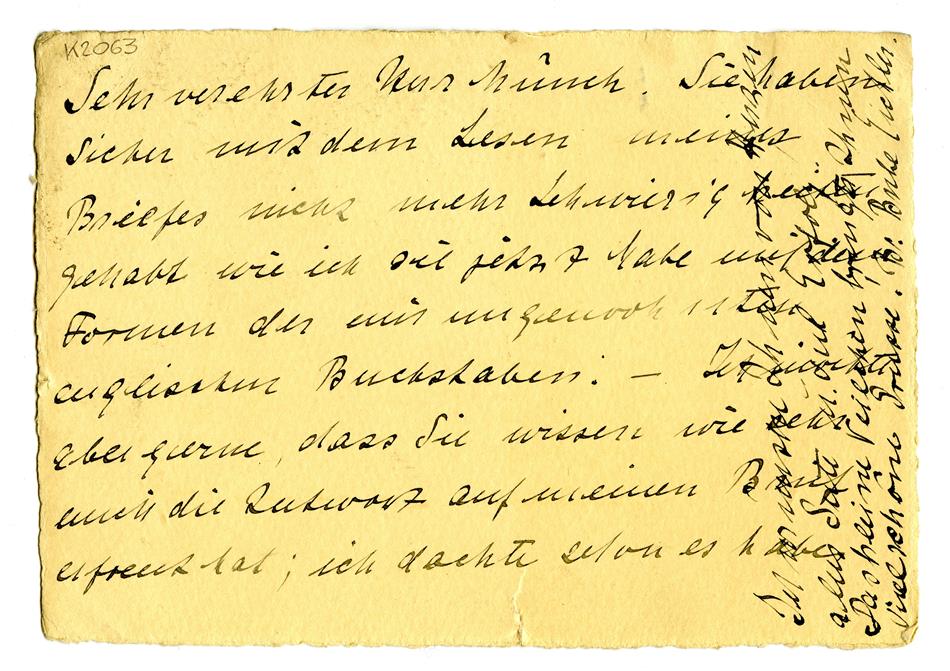 K2063
Sehr verehrter Herr Münch. Sie haben
sicher mit dem Lesen meines
Briefes nicht mehr Schwierigkeiten
gehabt wie ich sie jetzt habe mit den
Formen der mir ungewohnten
englischen Buchstaben. – Ich möchte
aber gerne, dass Sie wissen wie sehr
mich die Antwort auf meinen Brief
erfreut hat; ich dachte schon es habe
Ich wünsche Ihnen von Herzen
alles Gute u. viel Erfolg.
Das kleine Veilchen bringt Ihnen
viel schöne Grüsse. Dr.